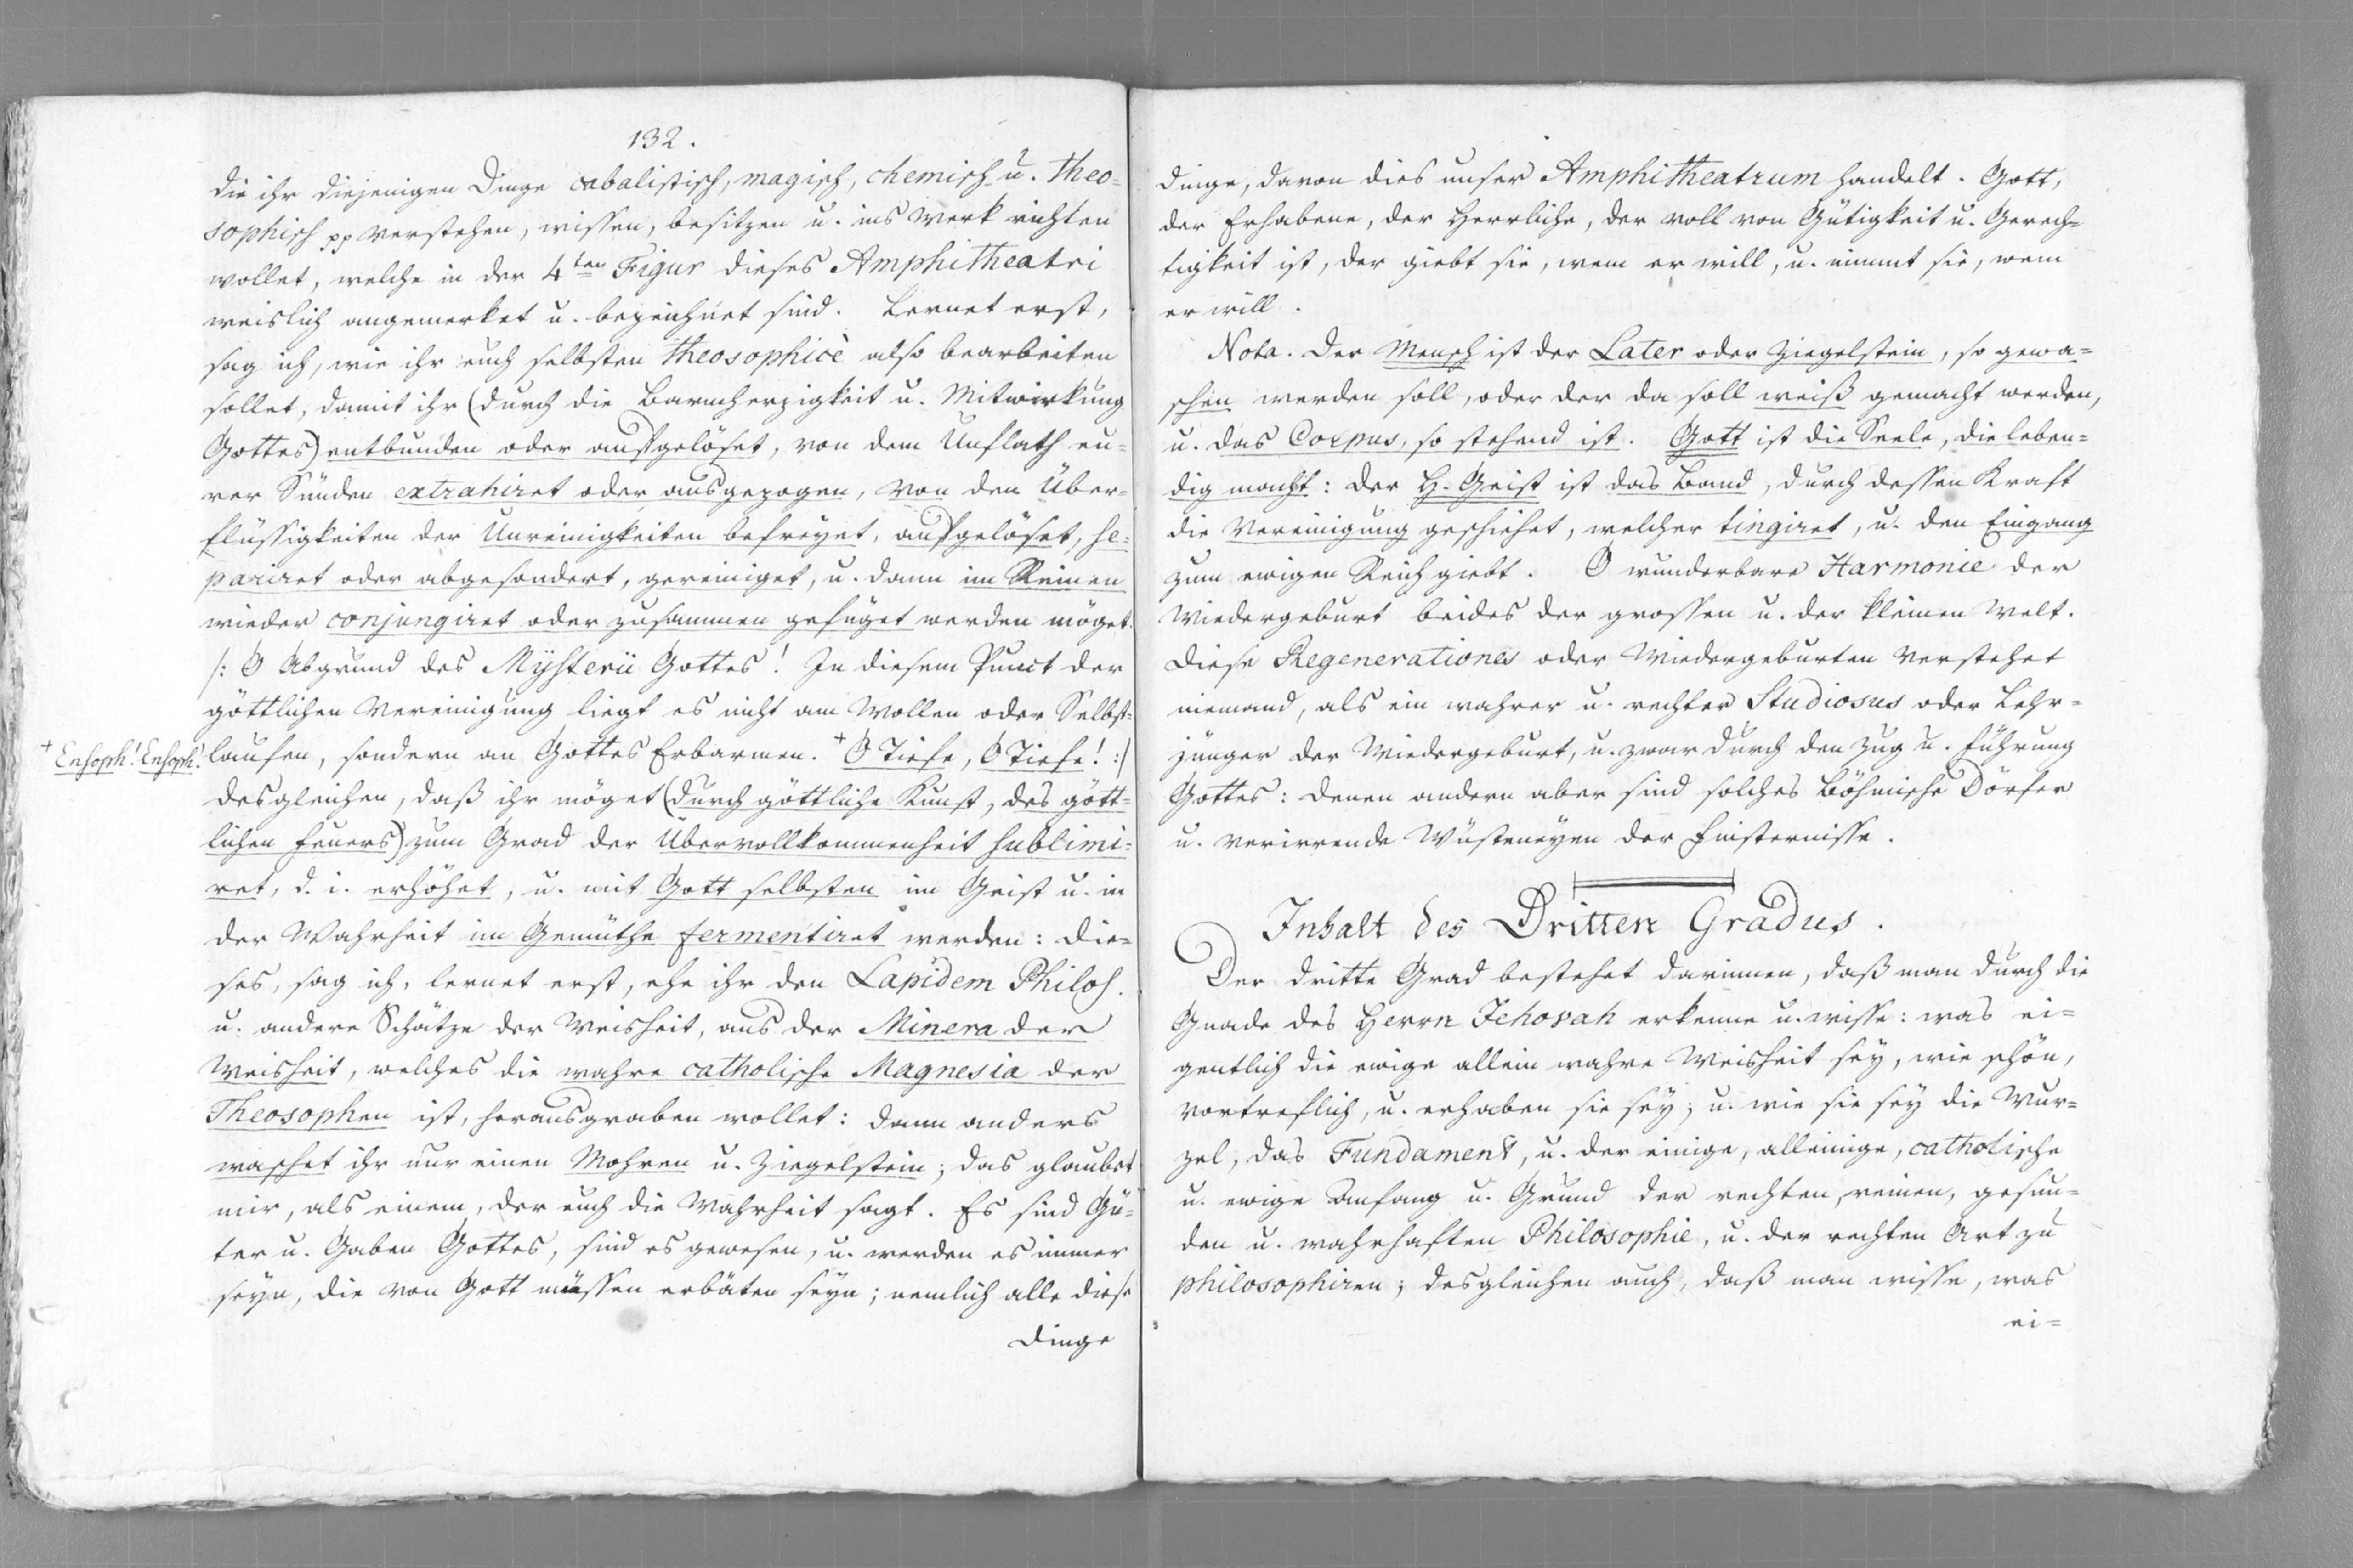 132.
die ihr diejenigen Dinge cabalistisch, magisch, chemisch u. Theo=
sophisch pp verstehen, wissen, besitzen u. ins Werk richten
wollet, welche in der 4ten Figur dieses Amphitheatri
weislich angemerket u. bezeichnet sind. Lernet erst,
sag ich, wie ihr euch selbsten theosophicè also bearbeiten
sollet, damit ihr (durch die Barmherzigkeit u. Mitwirkung
Gottes) entbunden oder aufgelöset, von dem Unflath eu=
rer Sünden extrahiret oder ausgezogen, von den Über=
flüssigkeiten der Unreinigkeiten befreyet, aufgelöset, se=
pariret oder abgesondert, gereiniget, u. dann im Reinen
wieder conjungiret oder zusammen gefüget werden möget.
/: O Abgrund des Mysterii Gottes! In diesem Punct der
göttlichen Vereinigung liegt es nicht am Wollen oder Selbst=
+ Ensoph! Ensoph!
laufen, sondern an Gottes Erbarmen. + O Tiefe, O Tiefe! :/
desgleichen, daß ihr möget (durch göttliche Kunst, des gött=
lichen Feuers) zum Grad der Übervollkommenheit sublimi=
ret, d. i. erhöhet, u. mit Gott selbsten im Geist u. in
der Wahrheit im Gemüthe fermentiret werden: die=
ses, sag ich, lernet erst, ehe ihr den Lapidem Philos.
u. andere Schätze der Weisheit, aus der Minera der
Weisheit, welches die wahre catholische Magnesia der
Theosophen ist, herausgraben wollet: dann anders
waschet ihr nur einen Mohren u. Ziegelstein; das glaubet
mir, als einem, der euch die Wahrheit sagt. Es sind Gü=
ter u. Gaben Gottes, sind es gewesen, u. werden es immer
seyn, die von Gott müssen erbäten seyn; nemlich alle diese
Dinge
Dinge, davon dies unser Amphitheatrum handelt. Gott,
der Erhabene, der Herrliche, der voll von Gütigkeit u. Gerech=
tigkeit ist, der giebt sie, wem er will, u. nimmt sie, wem
er will.
Nota. Der Mensch ist der Later oder Ziegelstein, so gewa=
schen werden soll, oder der da soll weiß gemacht werden,
u. das Corpus, so stehend ist. Gott ist die Seele, die leben=
dig macht: der H. Geist ist das Band, durch dessen Kraft
die Vereinigung geschiehet, welcher tingiret, u. den Eingang
zum ewigen Reich giebt. O wunderbare Harmonie der
Wiedergeburt beides der grossen u. der kleinen Welt.
Diese Regenerationes oder Wiedergeburten verstehet
niemand, als ein wahrer u. rechter Studiosus oder Lehr=
jünger der Wiedergeburt, u. zwar durch den Zug u. Führung
Gottes: denen andern aber sind solches Böhmische Dörfer
u. verirrende Wüsteneyen der Finsternisse.
Inhalt des Dritten Gradus.
Der dritte Grad bestehet darinnen, daß man durch die
Gnade des Herrn Jehovah erkenne u. wisse: was ei=
gentlich die ewige allein wahre Weisheit sey, wie schön,
vortreflich, u. erhaben sie sey; u. wie sie sey die Wur=
zel, das Fundament, u. der einige, alleinige, catholische
u. ewige Anfang u. Grund der rechten, reinen, gesun=
den u. wahrhaften Philosophie, u. der rechten Art zu
philosophiren; desgleichen auch, daß man wisse, was
ei=